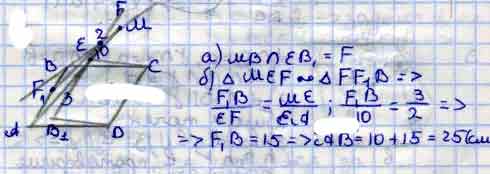 F
M
E
2
10
B
C
F₁
3
A
B₁
D
a) MB ∩ EB₁ = F
б) △ MEF ∾ △ FF₁B =>
F₁B/EF = ME/E₁A ; F₁B/10 = 3/2 =>
=> F₁B = 15 => AB = 10 + 15 = 25 (см